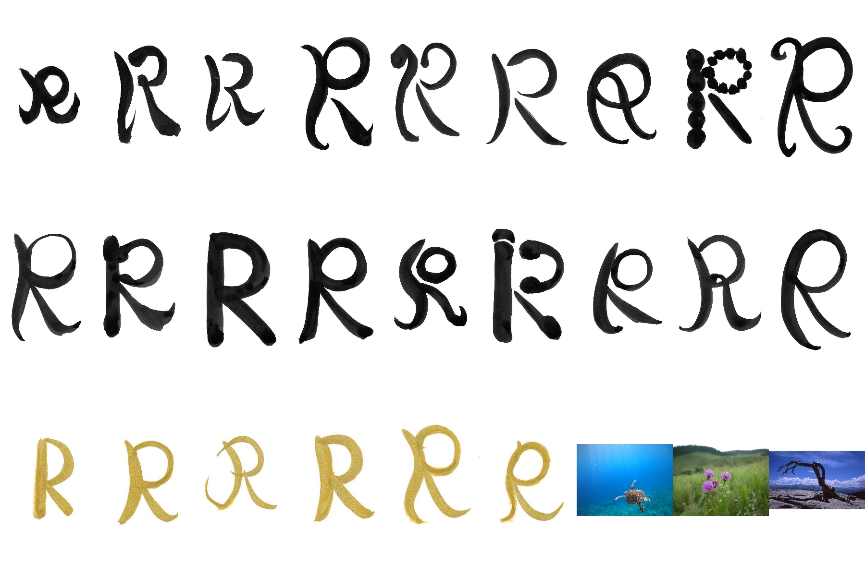 R R R R R R R R R
R R R R R R R R R
R R R R R R